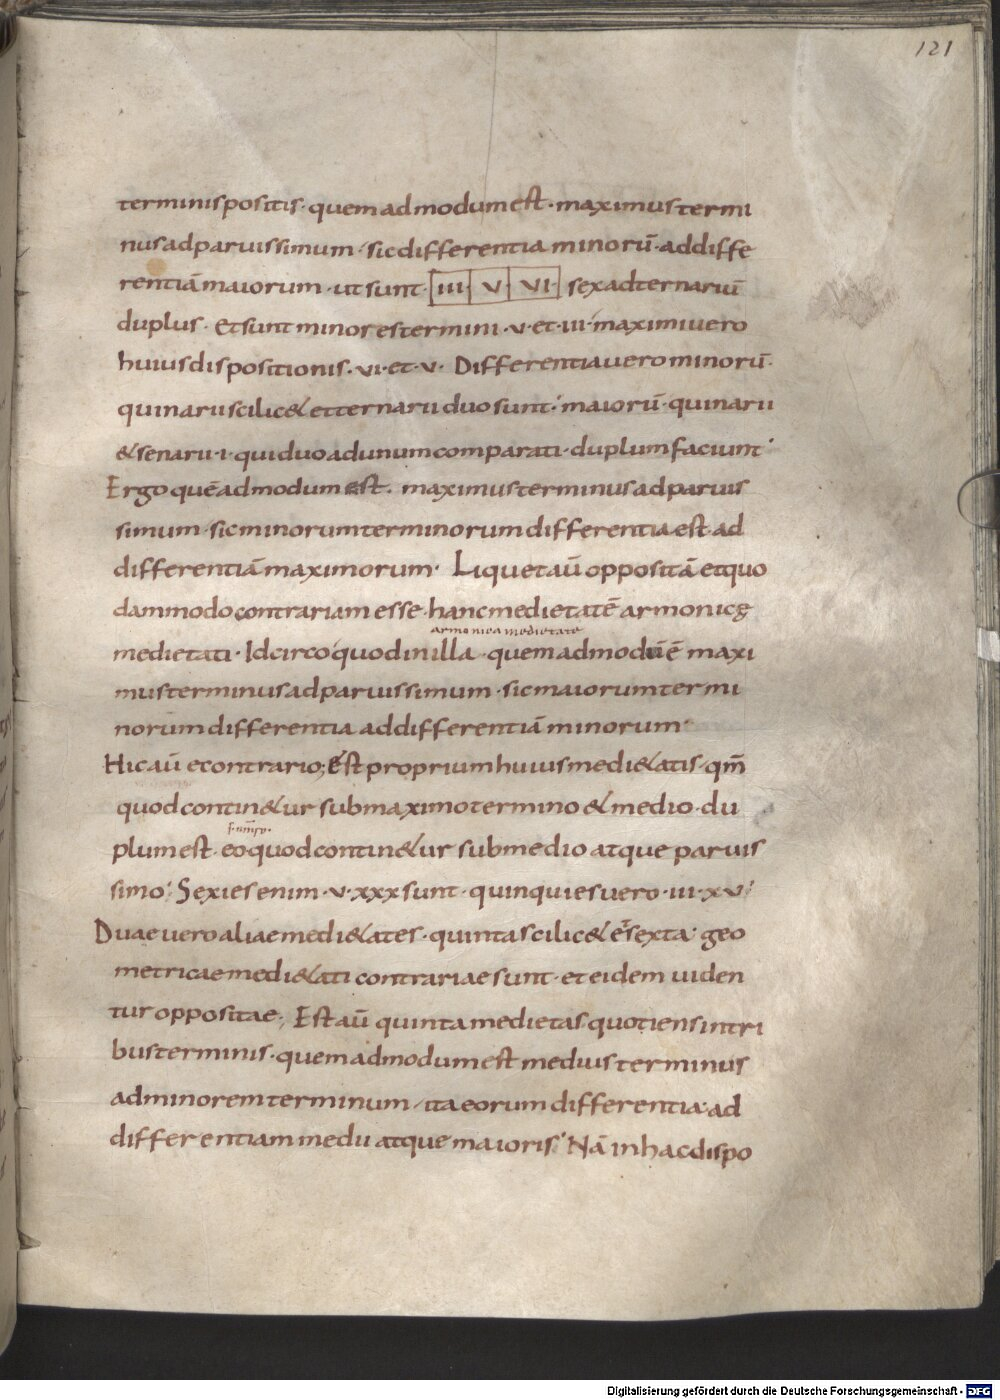 121
terminis positis· quem ad modum est· maximus termi
nus ad paruissimum· sic differentia minorū· ad diffe
rentiā maiorum· ut sunt· III V VI· sex ad ternariū
duplus· Et sunt minores termini· v· et· iii· maximi uero
huius dispositionis· vi· et· v· Differentia uero minorū·
quinarii scilic& et ternarii duo sunt· maiorū· quinarii
& senarii· i· qui duo ad unum comparati· duplum faciunt·
Ergo quē ad modum est· maximus terminus ad paruis
simum· sic minorum terminorum differentia est ad
differentiā maximorum· Liquet aū oppositā et quo
dammodo contrariam esse· hanc medietatē armonicę
armonica medietate
medietati· Idcirco quod in illa· quem ad modū ē maxi
mus terminus ad paruissimum· sic maiorum termi
norum differentia ad differentiā minorum·
Hic aū econtrario; Est proprium huius medi&atis· qm̄
quod contin&ur sub maximo termino & medio· du
plum est· eo quod contin&ur sub medio atque paruis
simo· Sexies enim· v· xxx sunt· quinquies uero· iii· xv·
Duae uero aliae medi&ates· quinta scilic& & sexta· geo
metricae medi&ati contrariae sunt· et eidem uiden
tur oppositae· Est aū quinta medietas· quotiens in tri
bus terminis· quem ad modum est medius terminus
ad minorem terminum· ita eorum differentia· ad
differentiam medii atque maioris· Nā in hac dispo
Digitalisierung gefördert durch die Deutsche Forschungsgemeinschaft - DFG